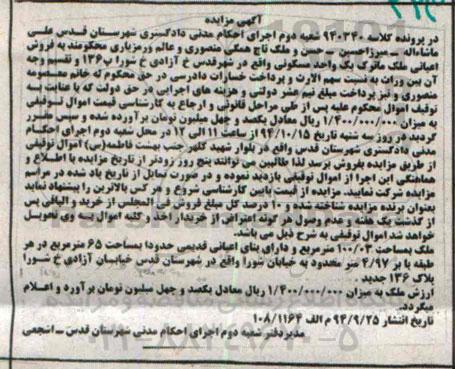 آگهی مزایده
در پرونده کلاسه ۹۴۰۳۴۰ شعبه دوم اجرای احکام مدنی دادگستری شهرستان قدس علی
ماشااله ـ میرزاحسین ـ حسن و ملک تاج همگی منصوری و عالم ورمزیاری محکومند به فروش
اعیانی ملک ماترک یک واحد مسکونی واقع در شهرقدس خ آزادی خ شورا پ ۱۳۶ و تقسیم وجه
آن بین وراث به نسبت سهم الارث و پرداخت خسارات دادرسی در حق محکوم له خانم معصومه
منصوری و نیز پرداخت مبلغ نیم عشر دولتی و هزینه های اجرایی در حق دولت که با عنایت به
توقیف اموال محکوم علیه پس از طی مراحل قانونی و ارجاع به کارشناسی قیمت اموال توقیفی
به میزان ۱/۴۰۰/۰۰۰/۰۰۰ ریال معادل یکصد و چهل میلیون تومان برآورده شده و سپس مقرر
گردید در روز سه شنبه تاریخ ۹۴/۱۰/۱۵ از ساعت ۱۱ الی ۱۲ در محل شعبه دوم اجرای احکام
مدنی دادگستری شهرستان قدس واقع در بلوار شهید کلهر جنب بهشت فاطمه(س) اموال توقیفی
از طریق مزایده بفروش برسد لذا طالبین می توانند پنج روز زودتر از تاریخ مزایده با اطلاع و
هماهنگی این اجرا از اموال توقیفی بازدید نموده و در صورت تمایل از تاریخ یاد شده در مراسم
مزایده شرکت نمایید. مزایده از قیمت پایین کارشناسی شروع و هر کس بالاترین را پیشنهاد نماید
بعنوان برنده مزایده شناخته شده و ۱۰ درصد کل مبلغ فروش فی المجلس از خرید و الباقی پس
از گذشت یک هفته و عدم وصول هر گونه اعتراض از خریدار اخذ و کلیه اموال به وی تحویل
خواهد شد اموال توقیفی به شرح ذیل می باشد.
ملک بمساحت ۱۰۰/۰۳ مترمربع و دارای بنای اعیانی قدیمی حدودا بمساحت ۶۵ مترمربع در هر
طبقه با بر ۴/۹۷ متر محدود به خیابان شورا واقع در شهرستان قدس خیابان آزادی خ شورا
پلاک ۱۳۶ جدید .
ارزش ملک به میزان ۱/۴۰۰/۰۰۰/۰۰۰ ریال معادل یکصد و چهل میلیون تومان برآورد و اعلام
میگردد.
تاریخ انتشار ۹۴/۹/۲۵ م الف ۱۰۸/۱۱۶۴
مدیردفتر شعبه دوم اجرای احکام مدنی شهرستان قدس ـ اشجعی